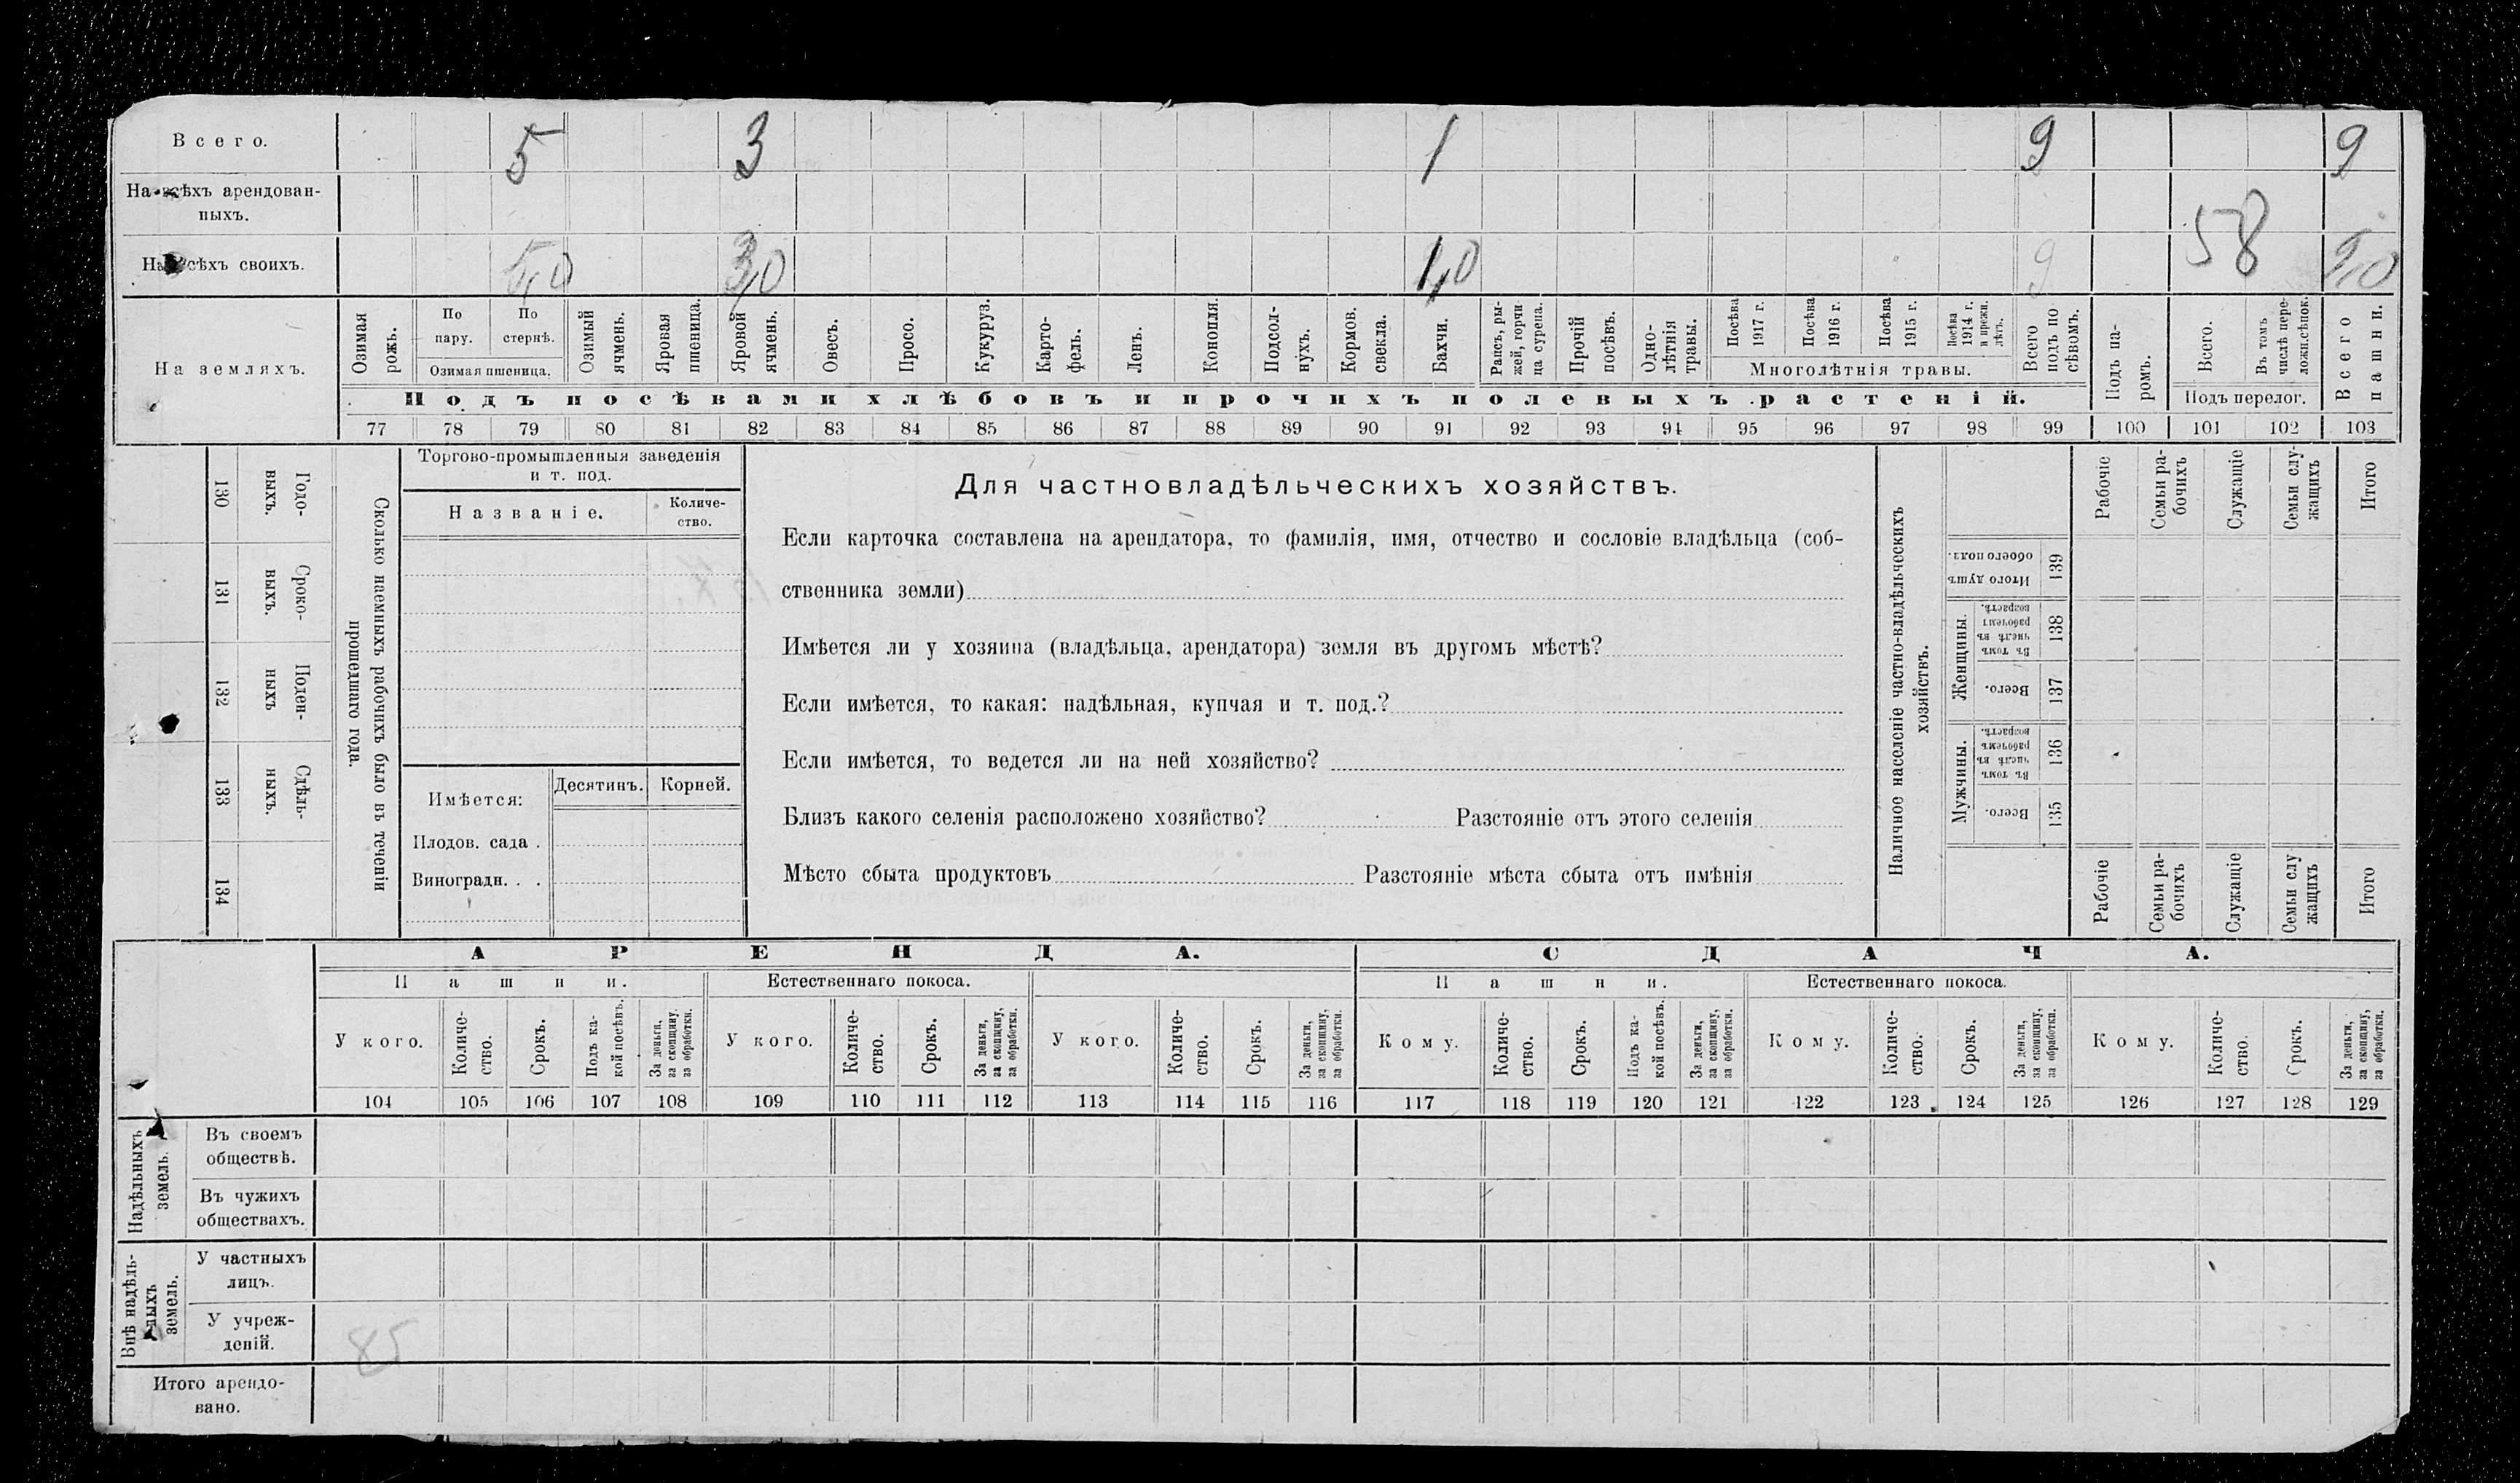 Всего. 5 3 1 9 9
На всѣхъ арендован-
ныхъ.
58
На всѣхъ своихъ. 5,0 3,0 1,0 9 9,0
На земляхъ.
Озимая рожь.
По пару.
По стернѣ.
Озимая пшеница.
Озимый ячмень.
Яровая пшеница.
Яровой ячмень.
Овесъ.
Просо.
Кукуруз.
Карто-
фель.
Ленъ.
Конопля.
Подсол-
нухъ.
Кормов. свекла.
Бахчи.
Рапсъ, ры-
жей, горчи
ца сурепа.
Прочій посѣвъ.
Одно-
лѣтнія травы.
Посѣва 1917 г.
Посѣва 1916 г.
Посѣва 1915 г.
Посѣва 1914 г. и прежн. лѣтъ.
Многолѣтнія травы.
Всего подъ по
сѣвомъ.
Подъ па-
ромъ.
Всего.
Въ томъ числѣ пере-
ложн.сѣпок.
Подъ перелог.
Всего пашни.
Подъ посѣвами хлѣбовъ и прочихъ полевыхъ растеній.
77 78 79 80 81 82 83 84 85 86 87 88 89 90 91 92 93 94 95 96 97 98 99 100 101 102 103
130 Годо-
выхъ.
131 Сроко-
выхъ.
132 Поден-
ныхъ
133 Сдѣль-
ныхъ.
134
Сколько наемныхъ рабочихъ было въ теченіи
прошедшаго года.
Торгово-промышленныя заведенія
и т. под.
Названіе.
Количе-
ство.
Имѣется: Десятинъ. Корней.
Плодов. сада .
Виноградн. . .
Для частновладѣльческихъ хозяйствъ.
Если карточка составлена на арендатора, то фамилія, имя, отчество и сословіе владѣльца (соб-
ственника земли)
Имѣется ли у хозяина (владѣльца, арендатора) земля въ другомъ мѣстѣ?
Если имѣется, то какая: надѣльная, купчая и т. под.?
Если имѣется, то ведется ли на ней хозяйство?
Близъ какого селенія расположено хозяйство? Разстояніе отъ этого селенія
Мѣсто сбыта продуктовъ Разстояніе мѣста сбыта отъ имѣнія
Наличное населеніе частно-владѣльческихъ
хозяйствъ.
Рабочіе
Семьи ра-
бочихъ
Служащіе
Семьи слу-
жащихъ
Итого
Итого душъ обоего пола. 139
Женщины.
Въ томъ числѣ въ рабочемъ возрастѣ. 138
Всего. 137
Мужчины.
Въ томъ числѣ въ рабочемъ возрастѣ. 136
Всего. 135
Рабочіе
Семьи ра-
бочихъ
Служащіе
Семьи слу
жащихъ
Итого
АРЕНДА. СДАЧА.
Пашни. Естественнаго покоса. Пашни. Естественнаго покоса.
У кого.
Количе-
ство.
Срокъ.
Подъ ка-
кой посѣвъ.
За деньги,
за скопщину,
за обработки.
У кого.
Количе-
ство.
Срокъ.
За деньги,
за скопщину,
за обработки.
У кого.
Количе-
ство.
Срокъ.
За деньги,
за скопщину,
за обработки.
Кому.
Количе-
ство.
Срокъ.
Подъ ка-
кой посѣвъ.
За деньги,
за скопщину,
за обработки.
Кому.
Количе-
ство.
Срокъ.
За деньги,
за скопщину,
за обработки.
Кому.
Количе-
ство.
Срокъ.
За деньги,
за скопщину,
за обработки.
104 105 106 107 108 109 110 111 112 113 114 115 116 117 118 119 120 121 122 123 124 125 126 127 128 129
Надѣльныхъ
земель.
Въ своемъ
обществѣ.
Въ чужихъ
обществахъ.
Внѣ надѣль-
ныхъ
земель.
У частныхъ
лицъ.
У учреж-
деній.
85
Итого арендо-
вано.